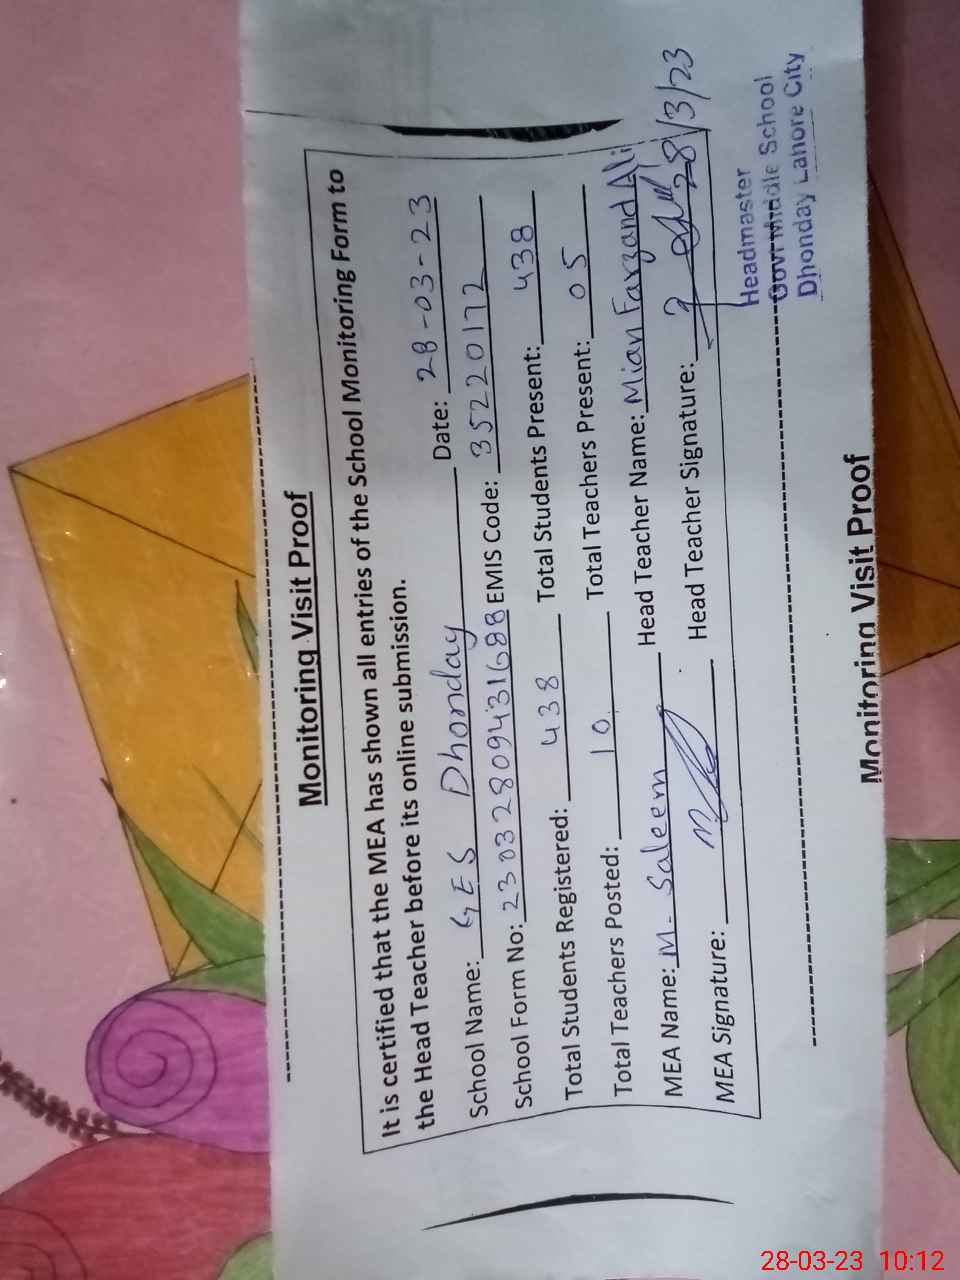 Monitoring Visit Proof
It is certified that the MEA has shown all entries of the School Monitoring Form to
the Head Teacher before its online submission.
School Name: GES Dhonday Date: 28-03-23
School Form No: 23032809431688 EMIS Code: 35220172
Total Students Registered: 438 Total Students Present: 438
Total Teachers Posted: 10 Total Teachers Present: 05
MEA Name: M. Saleem Head Teacher Name: Mian Farzand Ali
MEA Signature: Head Teacher Signature: 28/3/23
Headmaster
Govt Middle School
Dhonday Lahore City
Monitoring Visit Proof
28-03-23 10:12